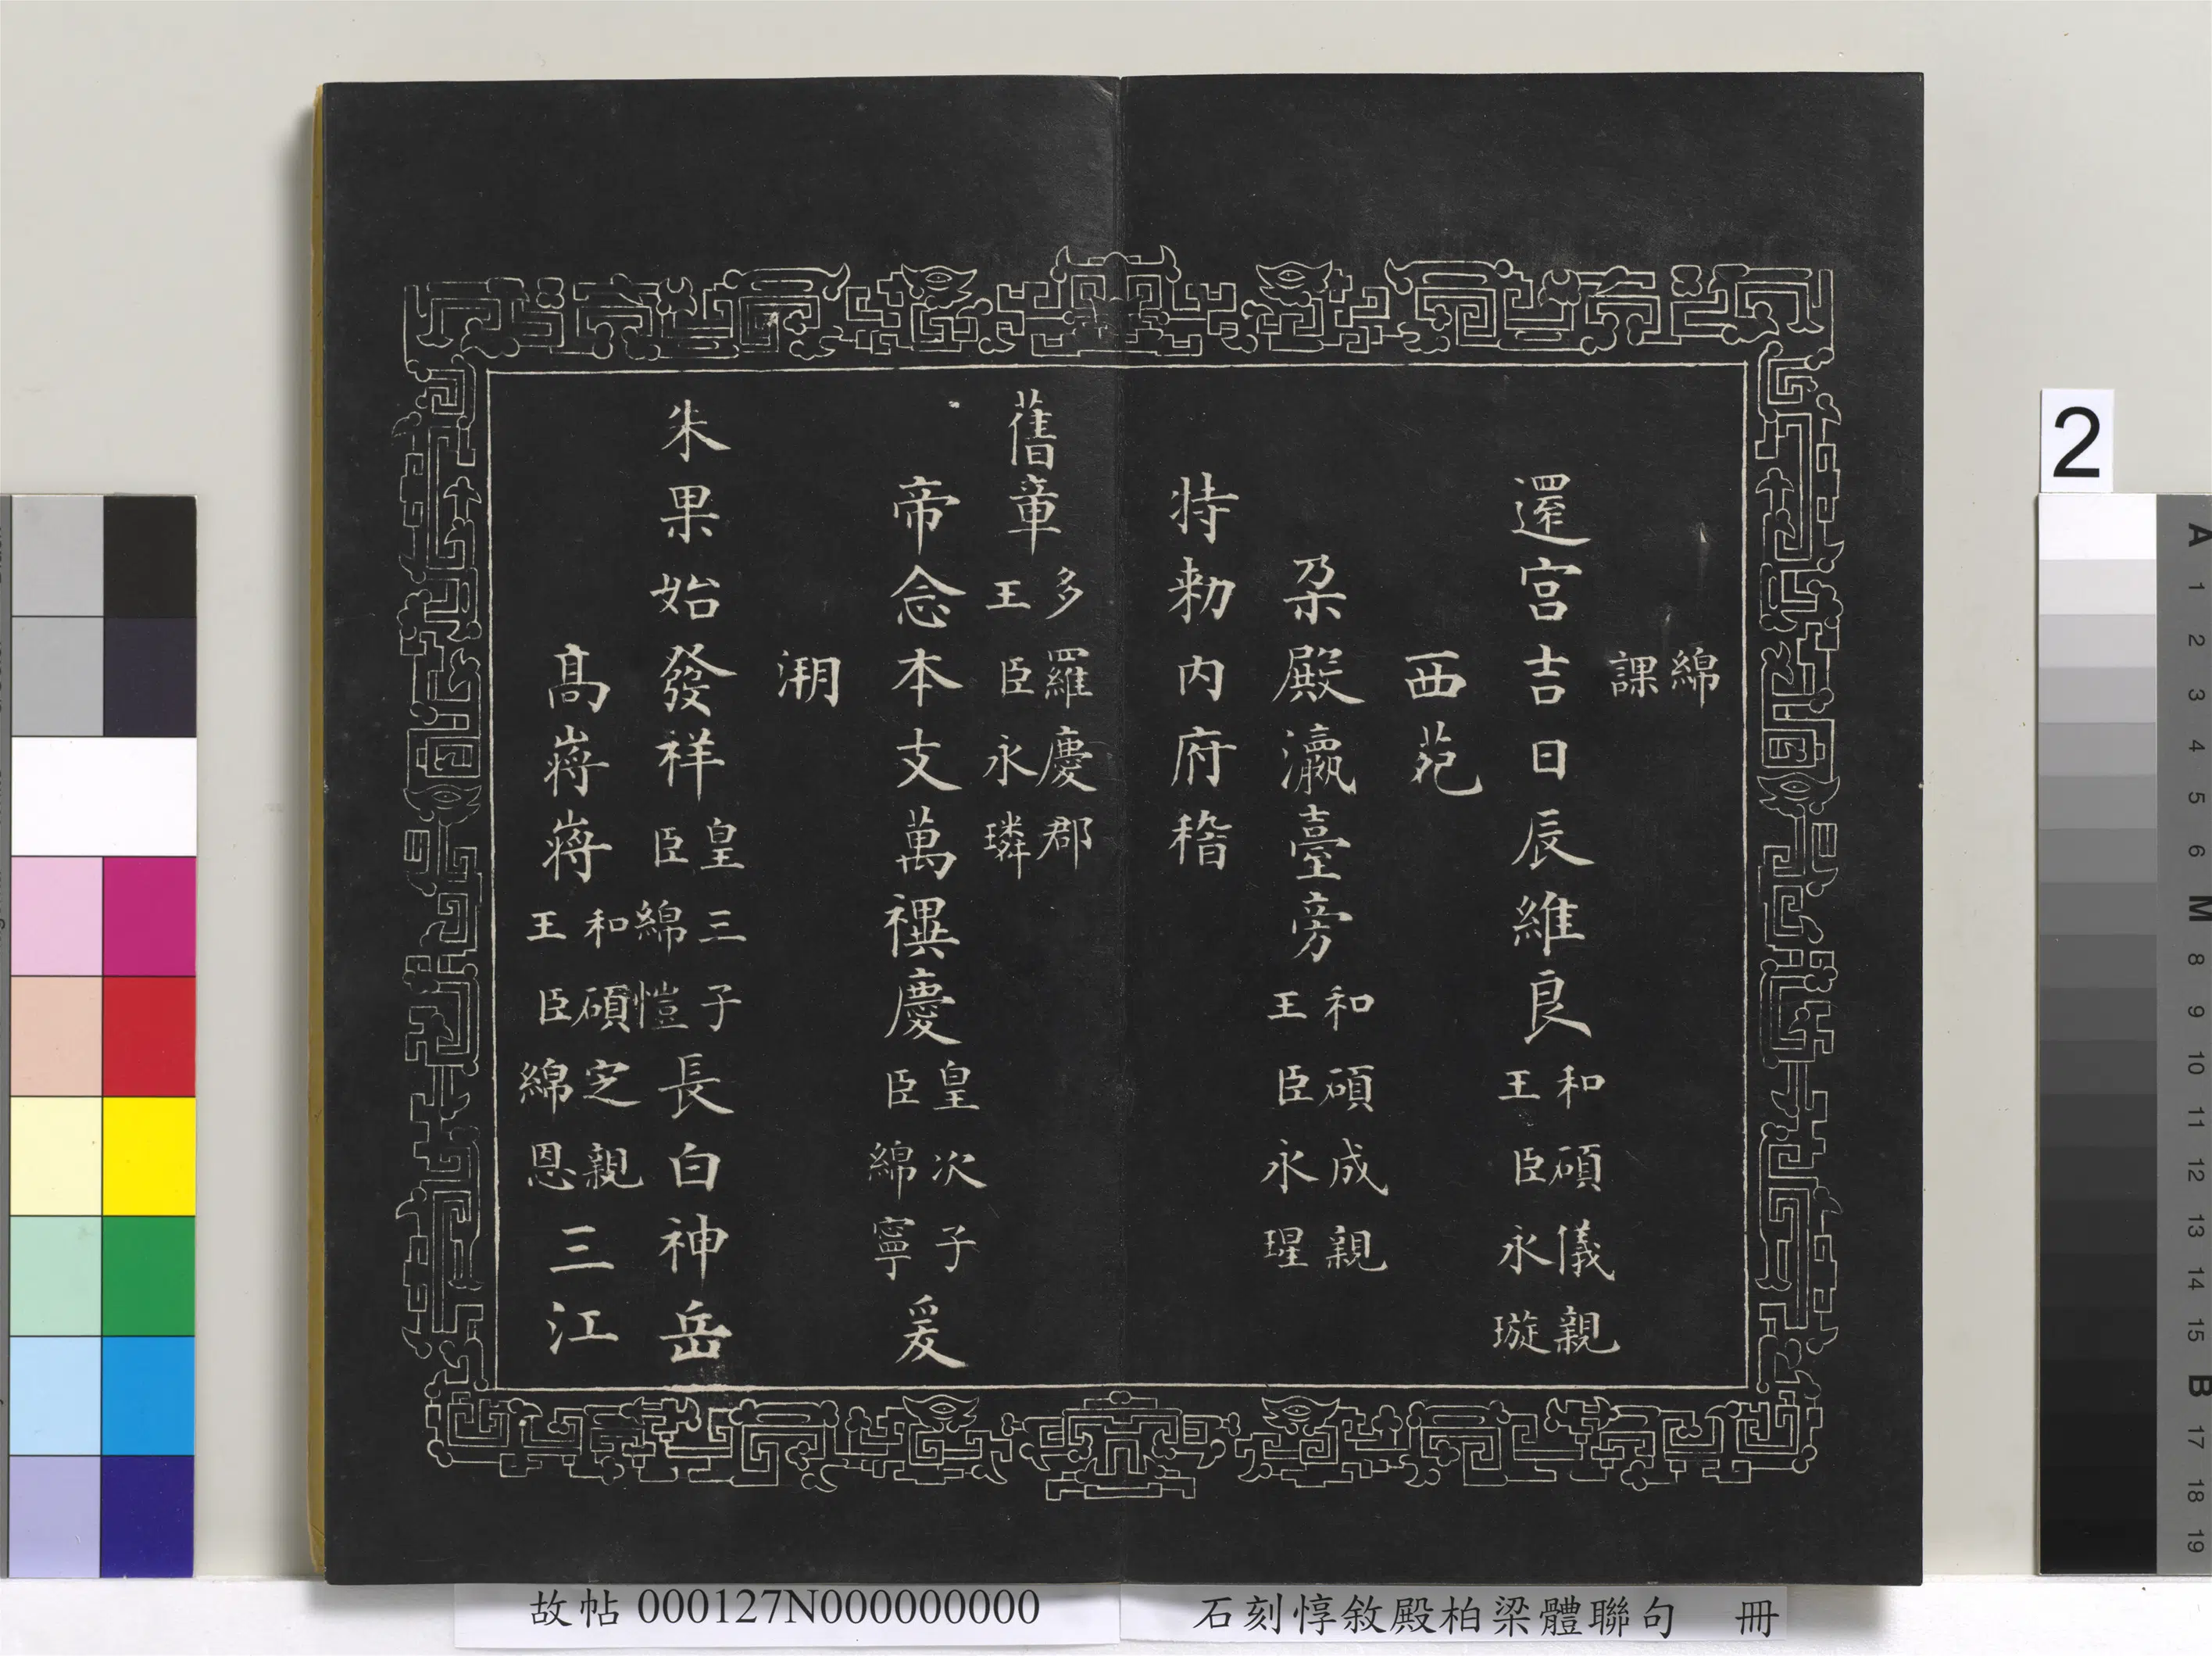 綿
課
還宮吉日辰維良和碩儀親
王臣永璇
西苑
朶殿瀛臺旁和碩成親
王臣永瑆
特勅內府稽
舊章多羅慶郡
王臣永璘
帝念本支萬禩慶皇次子
臣綿寧爰
溯
朱果始發祥皇三子
臣綿愷長白神岳
高嶈嶈和碩定親
王臣綿恩三江
故帖 000127N000000000
石刻惇敘殿柏梁體聯句 冊
2
A 1 2 3 4 5 6 M 8 9 10 11 12 13 14 15 B 17 18 19